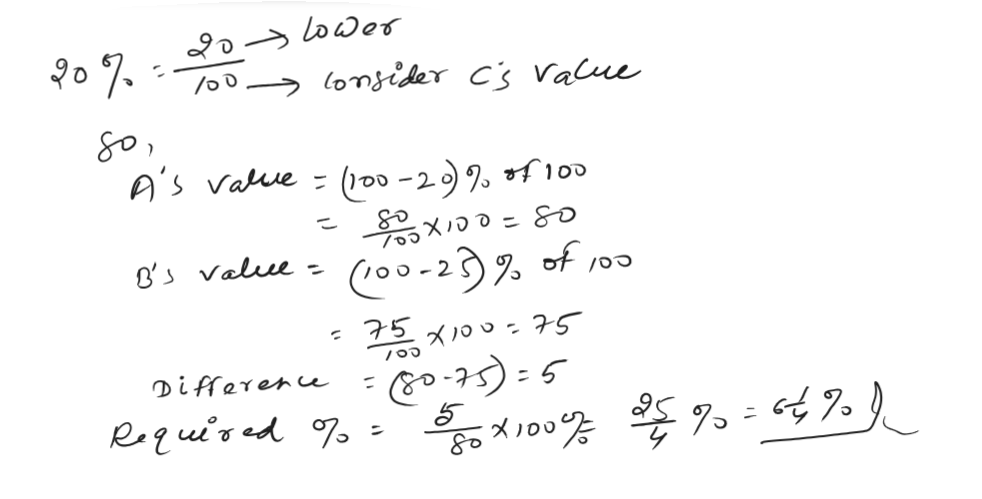 20% = 20/100 → lower
→ consider C's value
So,
A's value = (100-20)% of 100
= 80/100 × 100 = 80
B's value = (100-25)% of 100
= 75/100 × 100 = 75
Difference = (80-75) = 5
Required % = 5/80 × 100% = 25/4 % = 6 1/4 %